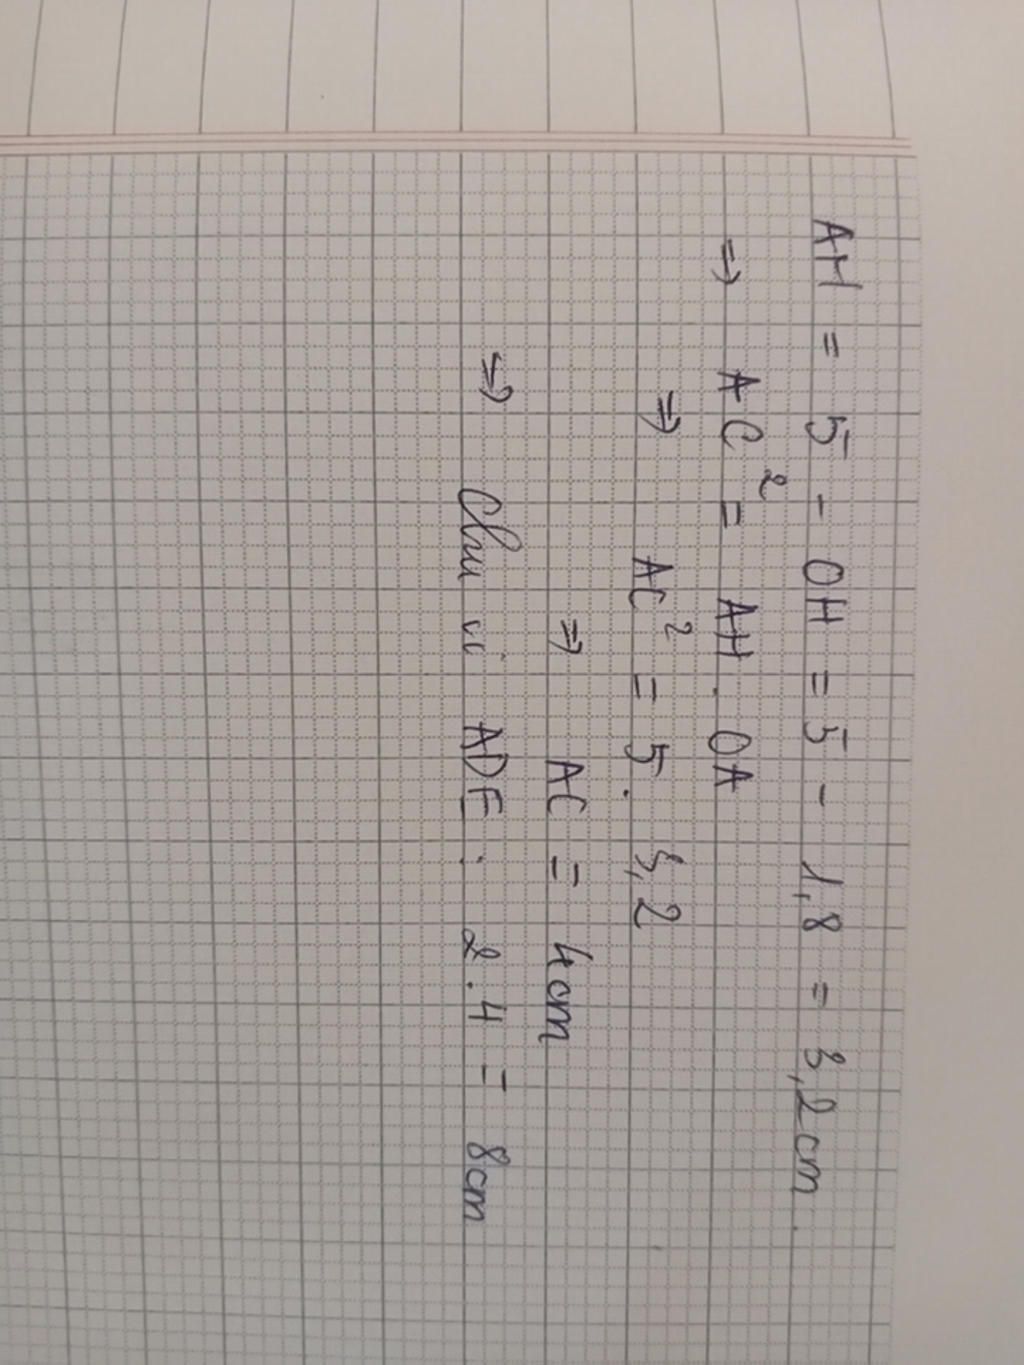 AH = 5 - OH = 5 - 1,8 = 3,2cm.
⇒ AC² = AH . OA
⇒ AC² = 5 . 3,2
⇒ AC = 4cm
⇒ Chu vi ADE : 2.4 = 8cm